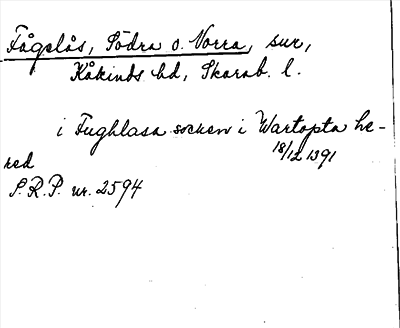 Fågelås, Södra o. Norra, snr,
Kåkinds hd, Skarab. l.
i Fughlasa socken i Wartopta he-
red 18/12 1391
S.R.P. nr. 2594